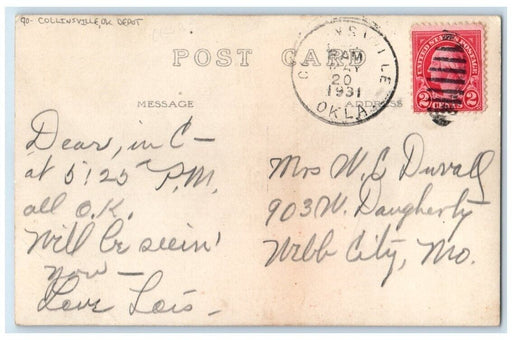 90- COLLINSVILLE, OK DEPOT
POST CARD
COLLINSVILLE
AM
MAY
20
1931
OKLA.
UNITED STATES POSTAGE
2 CENTS 2
MESSAGE
ADDRESS
Dears, in C—
at 5:25 P.M.
all O.K.
Will be seein'
you —
Love Lois —
Mrs W. C Duvall
903 W. Daugherty
Webb City, Mo.